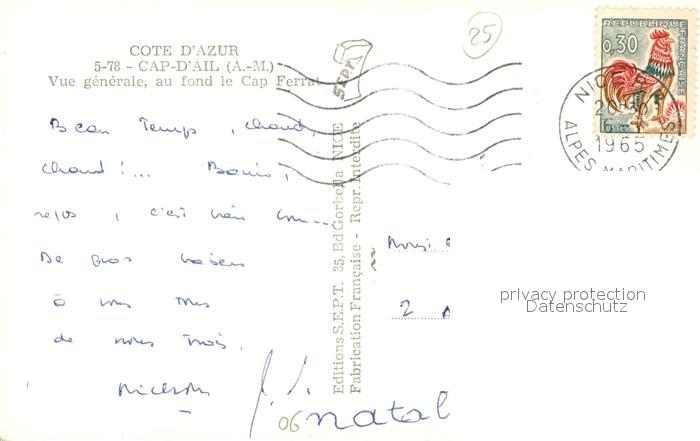 25
COTE D'AZUR
5-78 - CAP-D'AIL (A.-M.)
Vue générale, au fond le Cap Ferrat
SEPT
REPUBLIQUE FRANÇAISE
0,30
Postes
NICE
1965
ALPES-MARITIMES
Beau Temps, chaud,
chaud !... Bains,
repos, c'est bien
De gros baisers
à vous tous
de nous trois.
Editions S.E.P.T. 35, Bd Gorbella NICE
Fabrication Française - Repr. Interdite
2
privacy protection
Datenschutz
06
natal